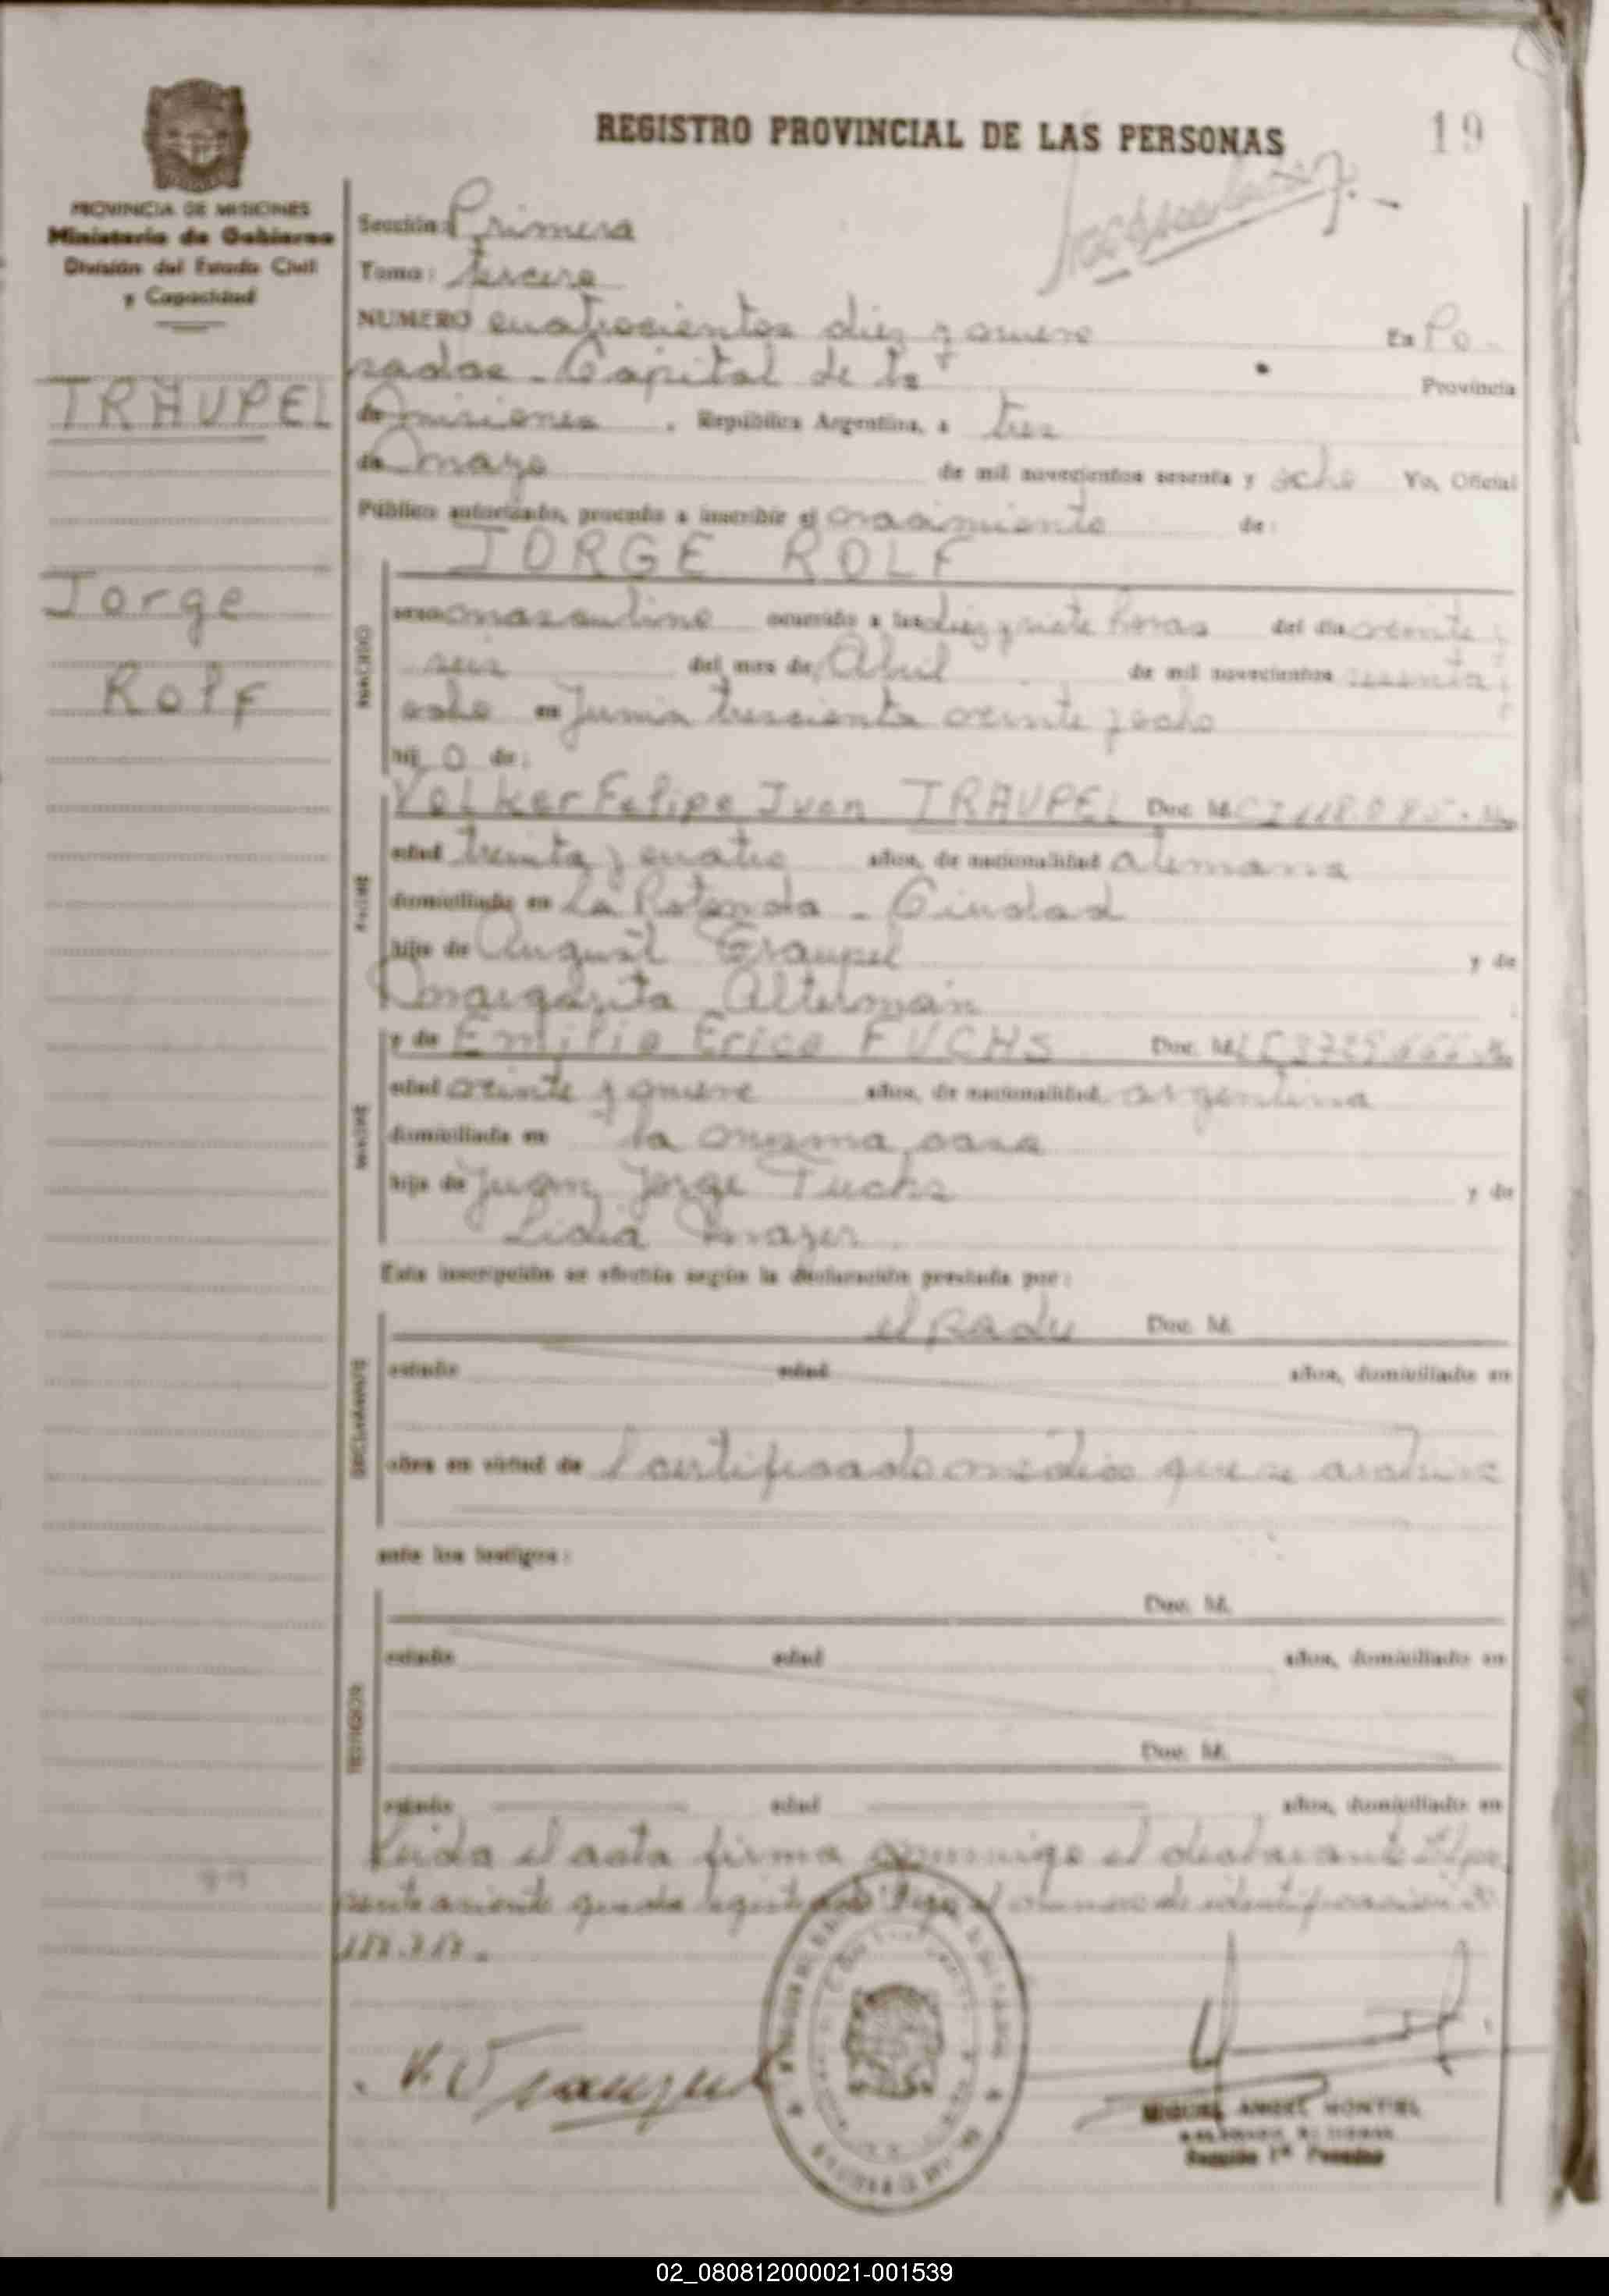 REGISTRO PROVINCIAL DE LAS PERSONAS
19
PROVINCIA DE MISIONES
Ministerio de Gobierno
División del Estado Civil
y Capacidad
TRAUPEL
Jorge
Rolf
Sección: Primera
Tomo: tercero
NUMERO cuatrocientos diez y nueve En Po-
sadas - Capital de la Provincia
de Misiones, República Argentina, a tres
de mayo de mil novecientos sesenta y ocho Yo, Oficial
Público autorizado, procedo a inscribir el nacimiento de:
JORGE ROLF
NACIDO
sexo masculino ocurrido a las diez y siete horas del día veinte y
seis del mes de Abril de mil novecientos sesenta y
ocho en Junin trescientos veinte y ocho
hij o de:
PADRE
Volker Felipe Juan TRAUPEL Doc. Id. CI
edad treinta y cuatro años, de nacionalidad alemana
domiciliado en La Rotonda - Ciudad
hijo de August Traupel y de
Margarita
MADRE
y de Emilia Erica FUCHS Doc. Id. LC
edad veinte y nueve años, de nacionalidad argentina
domiciliada en la misma casa
hija de Juan Jorge Fuchs y de
Lidia
Esta inscripción se efectúa según la declaración prestada por:
DECLARANTE
el padre Doc. Id.
estado edad años, domiciliado en
obra en virtud de certificado medico que se archiva
ante los testigos:
TESTIGOS
Doc. Id.
estado edad años, domiciliado en
Doc. Id.
estado edad años, domiciliado en
Leida el acta firma conmigo el declarante El pre
sente asiento queda registrado bajo el numero de identificación
V. Traupel
MIGUEL ANGEL MONTIEL
Sección 1ª Posadas
02_080812000021-001539